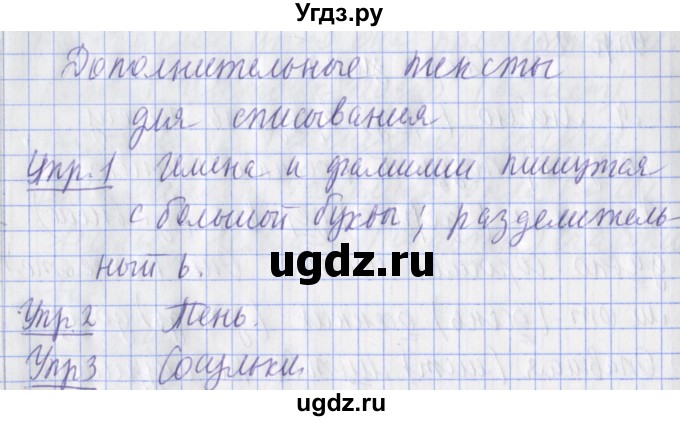 Угдз.ру
Дополнительные тексты
для списывания
Упр.1 Имена и фамилии пишутся
с большой буквы; разделитель-
ный ь.
ugdz.ru
Упр.2 Тень.
Упр3 Сосульки.
ugdz.ru